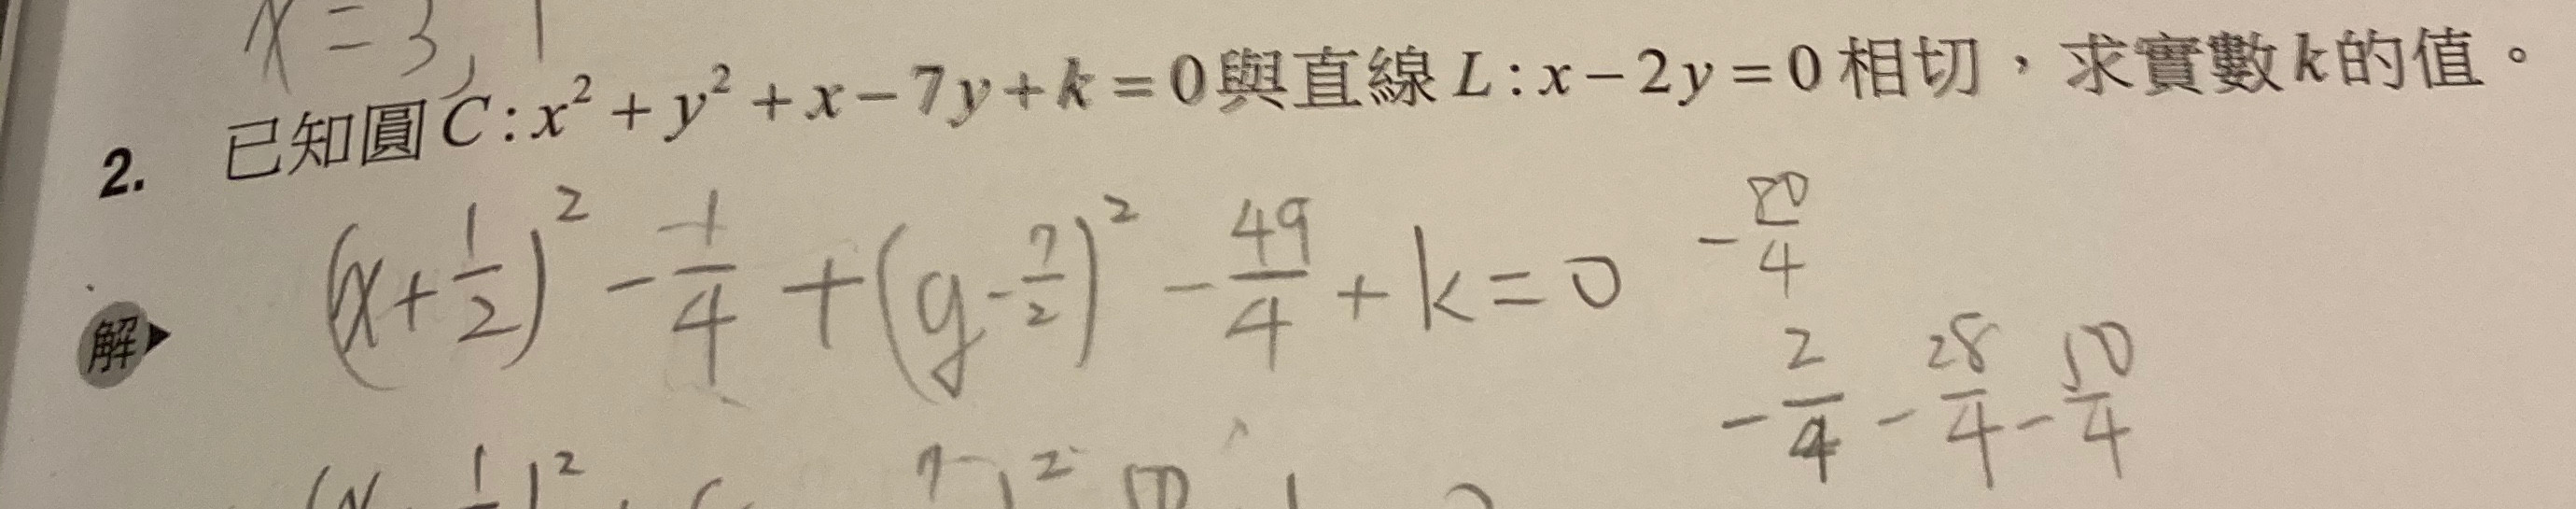 x = 3, 1
2. 已知圓C:x²+y²+x−7y+k=0與直線L:x−2y=0相切,求實數k的值。
解▶ (x+1/2)² − 1/4 + (y−7/2)² − 49/4 + k = 0
−80/4
−2/4 − 28/4 − 50/4